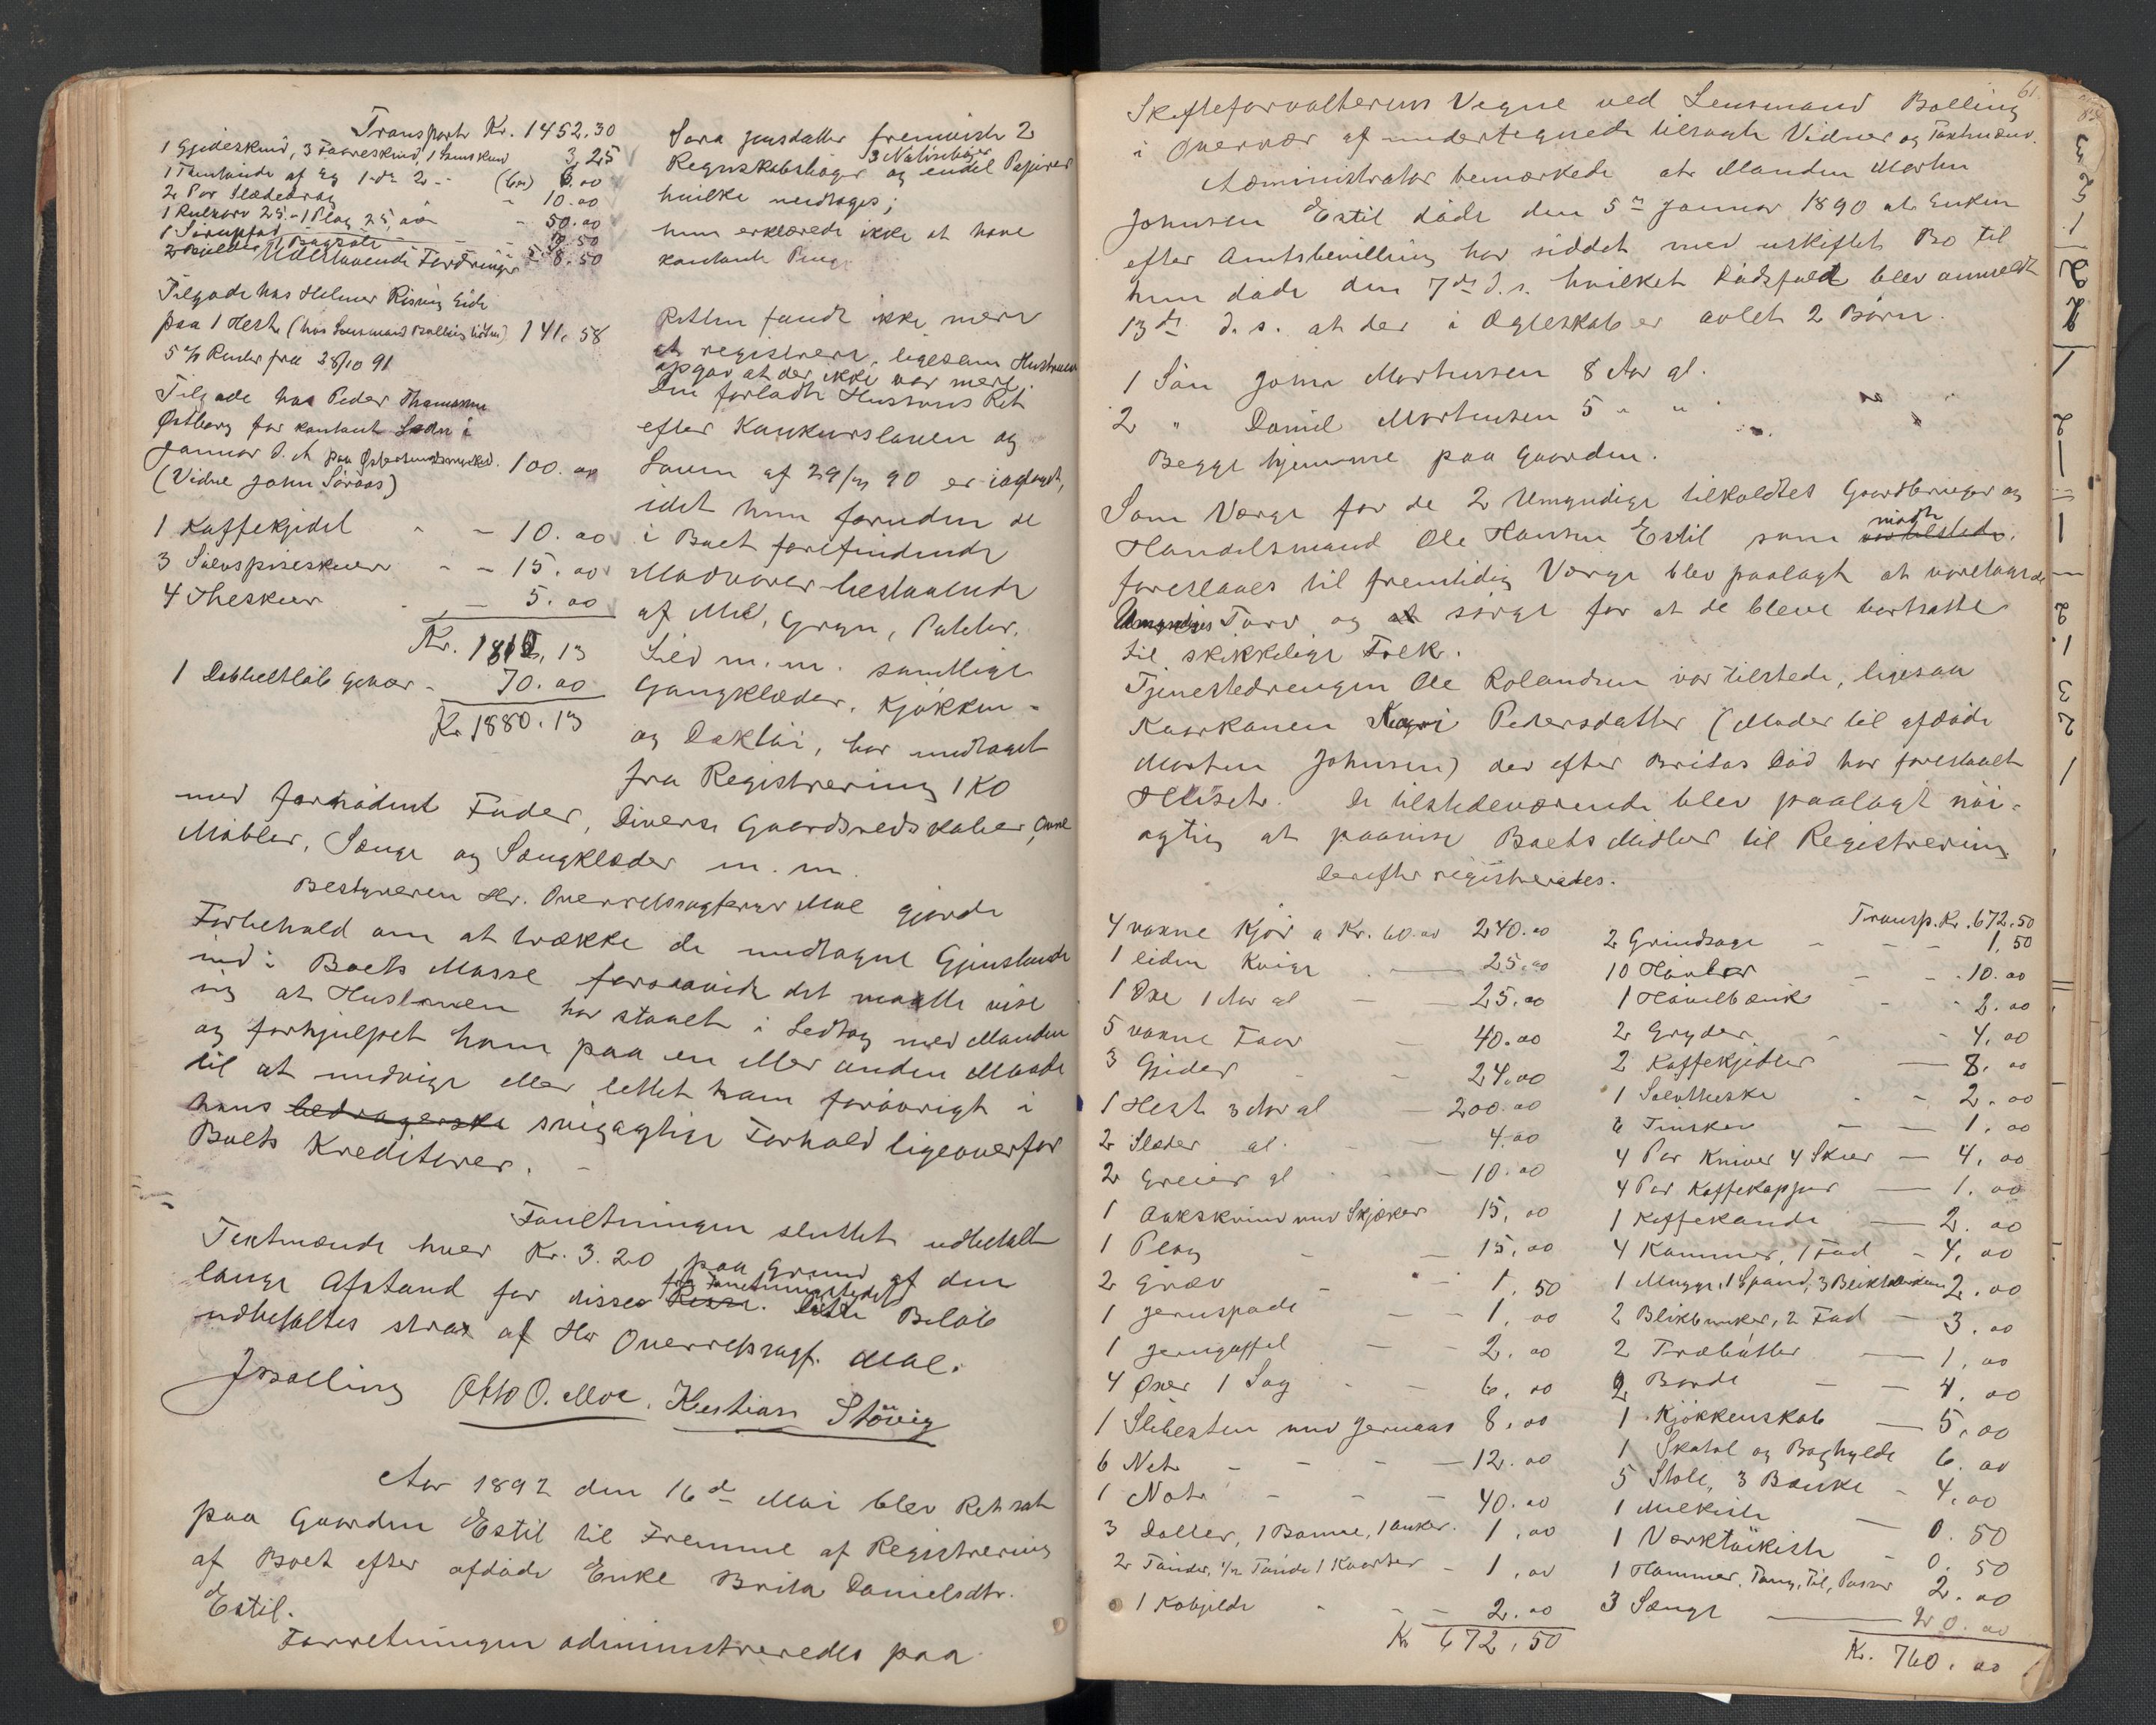 Transport Kr. 1452.30
1 Gjedeskind, 3 Faareskind, 1 skind 3,25
1 af Eg 1 do 2 - (6m) 6.00
2 Par Slædedrag - 10.00
1 Kulkorv 25 - 1 Plog 25,00 - 50.00
1 - - 0.50
2 - 8.50
Udestaaende Fordringer
Tilgode hos Helmer Rising Eide
paa 1 Hest (hos Lensmand Bolling ) 141.58
5 % Renter fra 28/10 91
Tilgode hos Peder Thomassen
Østborg for kontant Laan i
Januar d. A. paa
(Vidne John Søraas) 100.00
1 Kaffekjedel - - 10.00
3 Sølvspiseskeer - - 15.00
4 Theskeer - 5.00
Kr. 1810,13
1 Dobbeltløb Gevær - 70.00
Kr. 1880.13
Sara Jensdatter fremviste 2
Regnskabsbøger 3 Notisbøger og endel Papirer
hvilke medtoges;
hun erklærede ikke at have
kontante Penge
Retten fandt ikke mere
at registrere, ligesom Hustruen
opgav at der ikke var mere.
Den forladte Hustrus Ret
efter Konkursloven og
Loven af 29/ 90 er iagttaget,
idet hun foruden de
i Boet forefindende
Madvarer bestaaende
af Mel, Gryn, Poteter,
Sild m.m. samtlige
Gangklæder, Kjøkken-
og Dæktøi, har undtaget
fra Registrering 1 Ko
med fornødent Foder, Diverse Gaardsredskaber, Ovne
Møbler, Senge og Sengklæder m.m.
Bestyreren Hr. Overretssagfører Moe gjorde
Forbehold om at trække de undtagne Gjenstande
ind i Boets Masse forsaavidt det maatte vise
sig at Hustruen har staaet i Ledtog med Manden
og forhjulpet ham paa en eller anden Maade
til at undvige eller lettet ham forøvrigt i
hans bedragerske svigagtige Forhold ligeoverfor
Boets Kreditorer. -
Forretningen sluttet udbetalt
Taxtmænde hver Kr. 3.20 paa Grund af den
lange Afstand for disse Reise. fra Forretningsstedet dette Beløb
udbetaltes strax af Hr Overretssagf. Moe.
J Bolling Otto O. Moe. Kristian Støvig
Aar 1892 den 16de Mai blev Ret sat
paa Gaarden Estil til Fremme af Registrering
af Boet efter afdøde Enke Brita Danielsdtr.
Estil.
Forretningen administreredes paa
61.
Skifteforvalterens Vegne ved Lensmand Bolling
i Overvær af undertegnede tilsagte Vidner og Taxtmænd.
Administrator bemærkede at Manden Morten
Johnsen Estil døde den 5te Januar 1890 at Enken
efter Amtsbevilling har siddet med uskiftet Bo til
hun døde den 7de d. s. hvilket Dødsfald blev anmeldt
13de d. s. at der i Ægteskab er avlet 2 Børn.
1 Søn Johan Mortensen 8 Aar gl.
2 " Daniel Mortensen 5 " "
Begge hjemme paa Gaarden.
Som Værge for de 2 Umyndige tilkaldtes Gaardbruger og
Handelsmand Ole Hansen Estil som var tilstede. mødte
foreslaaes til fremtidig Værge blev paalagt at varetage de
Umyndiges Tarv og at sørge for at de bleve bortsatte
til skikkelige Folk.
Tjenestedrengen Ole Rolandsen var tilstede, ligesaa
Kaarkonen Pedersdatter (Moder til afdøde
Morten Johnsen) der efter Britas Død har forestaaet
Huset. De tilstedeværende blev paalagt nøi-
agtig at paavise Boets Midler til Registrering
Derefter registreredes.
4 voxne Kjør a Kr. 60.00 240.00
1 liden Kvige - 25.00
1 Oxe 1 Aar gl - 25.00
5 voxne Faar - 40.00
3 Gjeder - - 24.00
1 Hest 3 Aar gl - 200.00
2 Slæder gl. - - 4.00
2 Greier gl - - 10.00
1 med Skjæker 15,00
1 Plog - - 15,00
2 Grev - - 1.50
1 Jernspade - - 1.00
1 Jerngaffel - - 2.00
4 Øxer 1 Sag - - 6.00
1 Slibesten med Jernaas 8.00
6 Net - - - 12.00
1 Not - - - 40.00
3 Daller, 1 Bomme, 1 Anker. 1.00
2 Tønder, 1/2 Tønde 1 Kvarter - 1.00
1 Kobjelde - - - 2.00
Kr 672,50
Transp. Kr. 672,50
2 Grindsage - - - 1,50
10 Høvler - - 10.00
1 Høvelbænk - - 2.00
2 Gryder - - 4.00
2 Kaffekjedler - 8.00
1 Sølvtheske - - 2.00
6 Tinskeer - - 1.00
4 Par Kniver 4 Skeer - 4.00
4 Par Kaffekopper - 1.00
1 Kaffekande - 2.00
4 Kammer, 1 Fad - 4.00
1 Mugge, 1 Spand, 3 2.00
2 Blikbunker, 2 Fad - 3.00
2 Træbøtter - 1.00
2 Borde - - 4.00
1 Kjøkkenskab - 5.00
1 Skatol og Boghylde 6.00
5 Stole, 3 Bænke - 4.00
1 Melkiste - 0.50
1 Værktøikiste - 0.50
1 Hammer, Tang, Fil, Passer 2.00
3 Senge - 20.00
Kr. 760.00